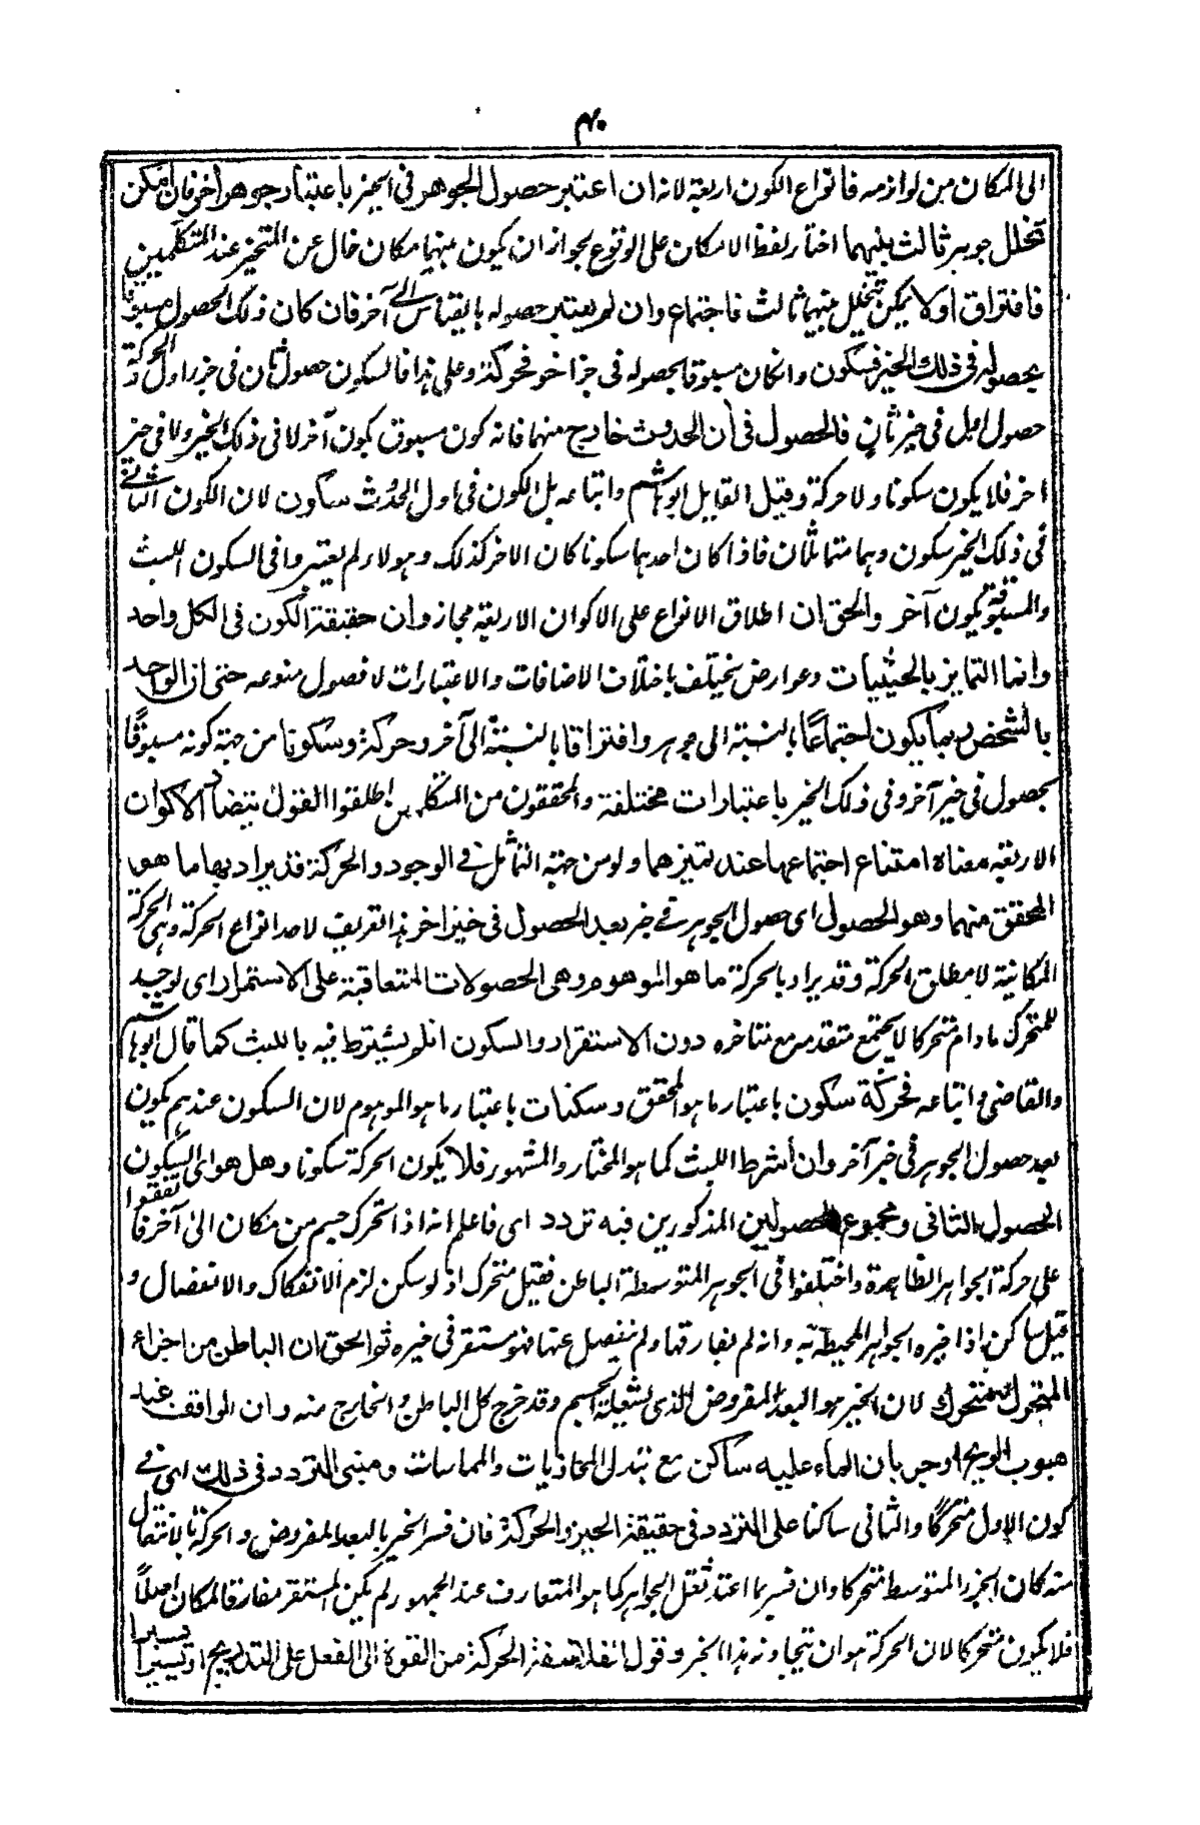 ۴۰
الى المكان من لوازمه فانواع الكون اربعة لانه ان اعتبر حصول الجوهر فى الحيز باعتبار جوهر اخر فان امكن
تخلل جوهر ثالث بينهما اختار لفظ الامكان على الوقوع لجواز ان يكون بينهما مكان خال عن المتحيز عند المتكلمين
فافتراق اولا يمكن تخلل بينهما ثالث فاجتماع وان لم يعتبر حصوله بالقياس الى آخر فان كان ذلك الحصول مسبوقا
بحصوله فى ذلك الحيز فسكون وانكان مسبوقا بحصوله فى حيز اخر فحركة وعلى هذا فالسكون حصول ثان فى حيز اول والحركة
حصول اول فى حيز ثانٍ فالحصول فى آن الحدوث خارج منهما فانه كون مسبوق بكون آخر لا فى ذلك الحيز ولا فى حيز
اخر فلا يكون سكونا ولا حركة وقيل القايل ابوهاشم واتباعه بل الكون فى اول الحدوث سكون لان الكون الثانى
فى ذلك الحيز سكون وهما متماثلان فاذا كان احدهما سكونا كان الاخر كذلك وهولاء لم يعتبروا فى السكون اللبث
والمسبوقية بكون آخر والحق ان اطلاق الانواع على الاكوان الاربعة مجاز وان حقيقة الكون فى الكل واحد
وانما التمايز بالحيثيات وعوارض يختلف باختلاف الاضافات والاعتبارات لا فصول منوعه حتى ان الواحد
بالشخص ربما يكون اجتماعًا بالنسبة الى جوهر وافتراقا بالنسبة الى آخر وحركة وسكونا من جهة كونه مسبوقًا
بحصول فى حيز آخر وفى ذلك الحيز باعتبارات مختلفة والمحققون من المتكلمين اطلقوا القول بتضاد الاكوان
الاربعة معناه امتناع اجتماعها عند تميزها ولو من جهة التماثل فى الوجود والحركة قد يراد بها ما هو
المحقق منهما وهو الحصول اى حصول الجوهر فى حيز بعد الحصول فى حيز اخر هذا تعريف لاحد انواع الحركة وهى الحركة
المكانية لا مطلق الحركة وقد يراد بالحركة ما هو الموهوم وهى الحصولات المتعاقبة على الاستمرار اى توجد
للمتحرك مادام متحركا لا يجتمع متقدمه مع متاخره دون الاستقرار والسكون ان لم يشترط فيه باللبث كما قال ابوهاشم
والقاضى واتباعه فحركة سكون باعتبار ما هو المحقق وسكنات باعتبار ما هو الموهوم لان السكون عندهم يكون
بعد حصول الجوهر فى حيز آخر وان اشترط اللبث كما هو المختار والمشهور فلا يكون الحركة سكونا وهل هو اى السكون
الحصول الثانى ومجموع الحصولين المذكورين فيه تردد اى فاعلم انه اذا تحرك جسم من مكان الى آخر فاتفقوا
على حركة الجواهر الظاهرة واختلفوا فى الجوهر المتوسطة الباطن فقيل متحرك اذ لو سكن لزم الانفكاك والانفصال و
قيل ساكن اذا حيزه الجواهر المحيطة به وانه لم يفارقها ولم ينفصل عنها فهو مستقر فى حيزه ثم الحق ان الباطن من اجزاء
المتحرك متحرك لان الحيز هو البعد المفروض الذى يشغله الجسم وقد خرج كل الباطن والخارج منه وان الواقف عند
هبوب الريح او جريان الماء عليه ساكن مع تبدل المحاذيات والمماسات ومبنى التردد فى ذلك اى فى
كون الاول متحركًا والثانى ساكنا على التردد فى حقيقة الحيز والحركة فان فسر الحيز بالبعد المفروض والحركة بالانتقال
منه كان الجزء المتوسط متحركا وان فسر بما اعتمد ثقل الجواهر كما هو المتعارف عند الجمهور لم يكن المستقر مفارقا لمكان اصلًا
فلا يكون متحركا لان الحركة هو ان يتجاوز هذا الحيز وقول الفلاسفة الحركة من القوة الى الفعل على التدريج او يسيرا يسيرا